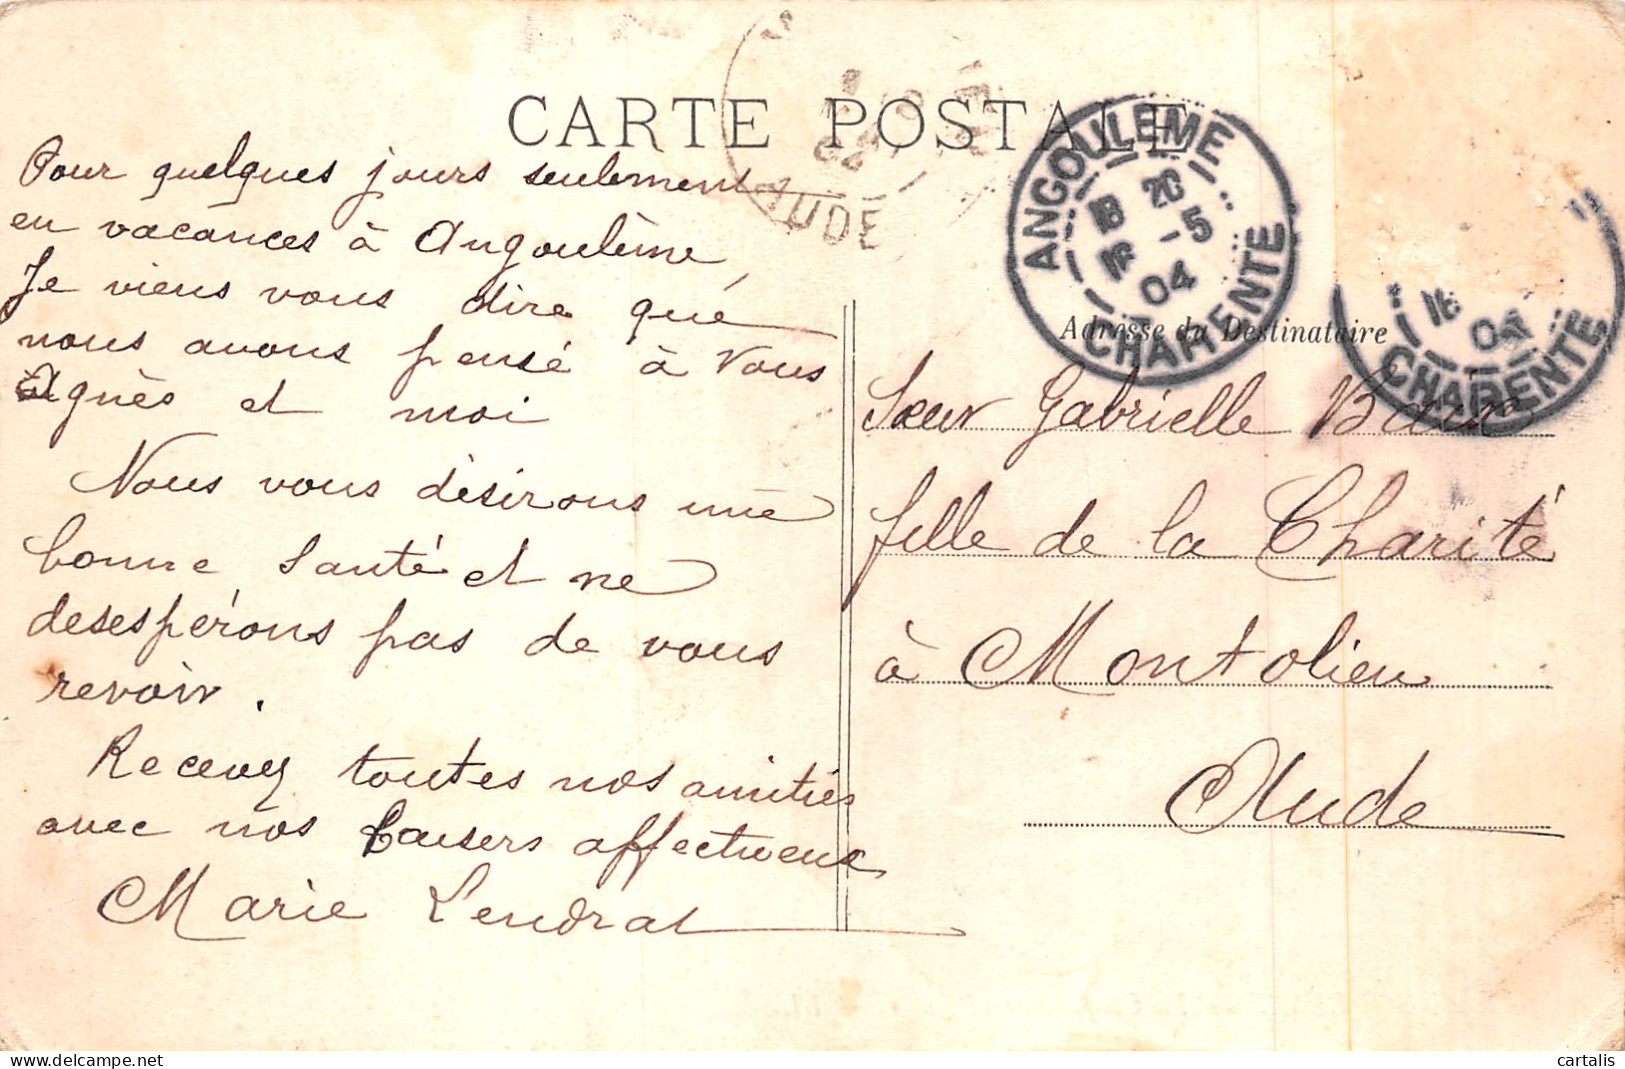 CARTE POSTALE
Pour quelques jours seulement
en vacances à Angoulème,
Je viens vous dire que
nous avons pensé à Vous
Agnès et moi
Nous vous désirons une
bonne santé et ne
desespérons pas de vous
revoir.
Recevez toutes nos amitiés
avec nos baisers affectueux
Marie Lendrat
AUDE
ANGOULEME
18 20
16 -5
04
CHARENTE
04
CHARENTE
Adresse du Destinataire
Sœur Gabrielle
fille de la Charité
à Montolieu
Aude
cartalis